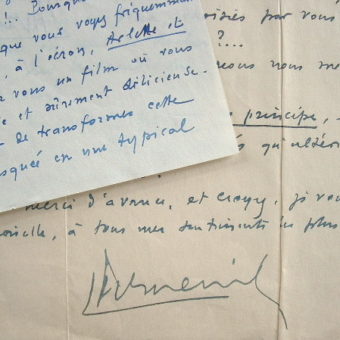 !.. Pourquoi
que vous voyez fréquemment
à l'écran, Arlette et
vous un film où vous
e et sûrement délicieuse.
de transformer cette
squée en une typical
par vous
?...
nous me
principe,
qu'ultéri
merci d'avance, et croyez, je vou
oiselle, à tous mes sentiments les plus